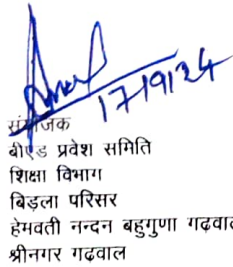 17/9/24
संयोजक
बीएड प्रवेश समिति
शिक्षा विभाग
बिड़ला परिसर
हेमवती नन्दन बहुगुणा
श्रीनगर गढ़वाल